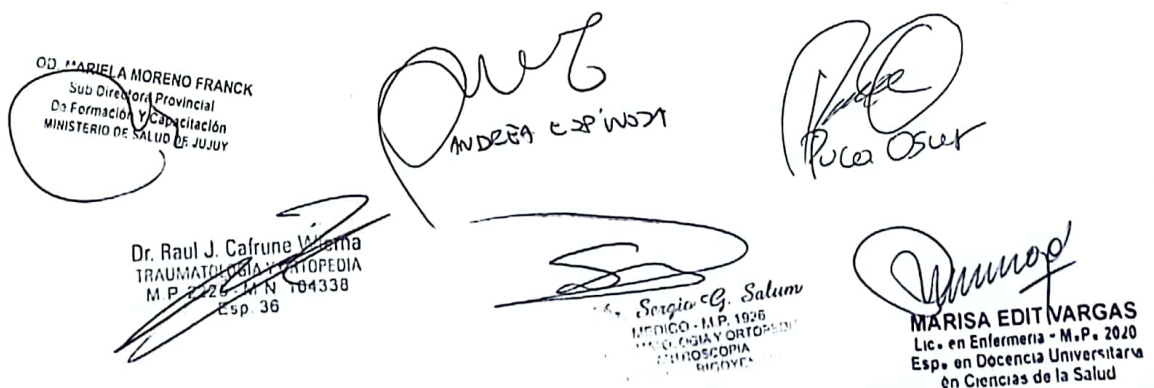 OD. MARIELA MORENO FRANCK
Sub Directora Provincial
De Formación Y Capacitación
MINISTERIO DE SALUD DE JUJUY
ANDREA ESPINOZA
Puca Oscar
Dr. Raul J. Cafrune Wierna
TRAUMATOLOGIA Y ORTOPEDIA
M.P. 2226 - M.N 104338
Esp. 36
Dr. Sergio G. Salum
MEDICO - M.P. 1926
Y ORTOPEDIA
ARTROSCOPIA
MARISA EDIT VARGAS
Lic. en Enfermeria - M.P. 2020
Esp. en Docencia Universitaria
en Ciencias de la Salud